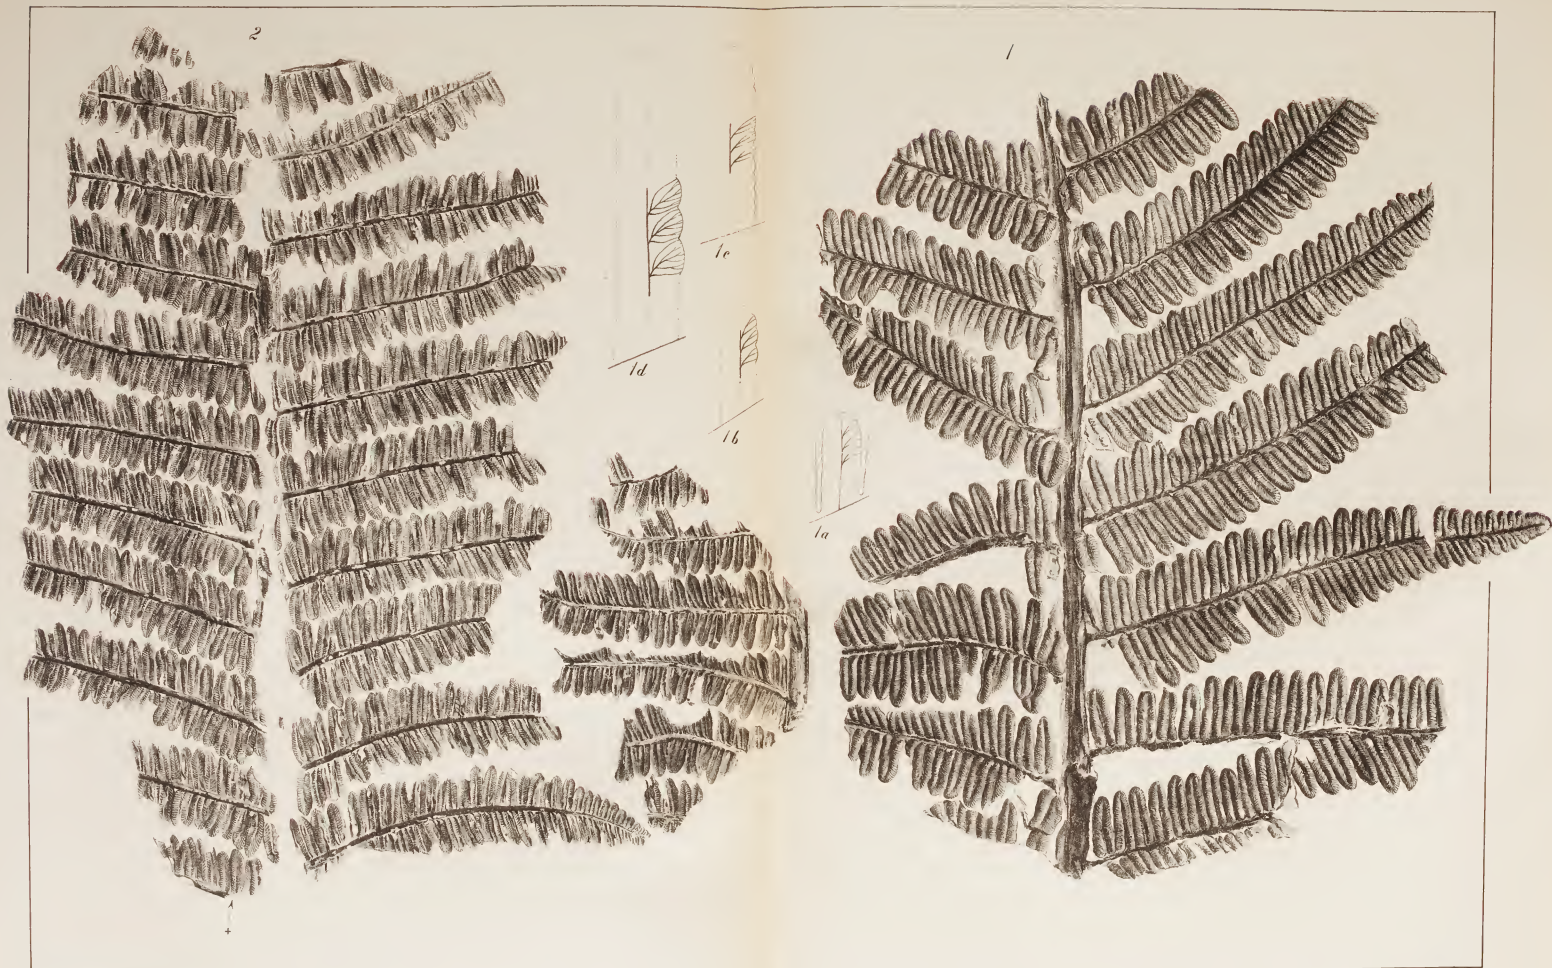 2
1
1c
1d
1b
1a
+